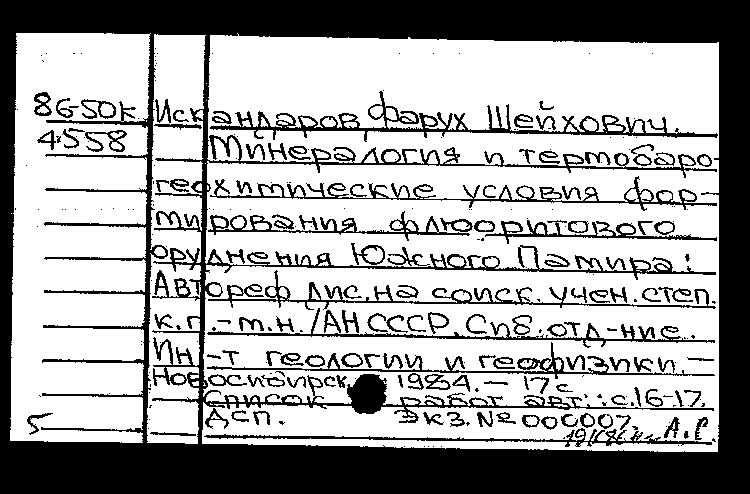 86-50к Искандаров, Фарух Шейхович.
4558 Минералогия и термобаро-
геохимические условия фор-
мирования флюоритового
оруднения Южного Памира:
Автореф дис. на соиск. учен. степ.
к.г.-м.н. /АН СССР. Сиб. отд-ние.
Ин-т геологии и геофизики. —
Новосибирск 1984. — 17 с
Список работ авт.: с. 16-17.
ДСП. Экз. № 000007.
5 А.С